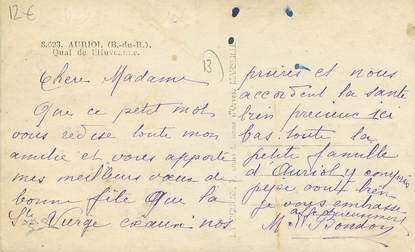 12€
S.623. AURIOL (B.-du-R.).
Quai de l'Huveaune.
13
Chère Madame
Que ce petit mot
vous redise toute mon
amitié et vous apporte
mes meilleurs vœux de
bonne fête que la
Ste Vierge exauce nos
prières et nous
accordent la santé
bien précieuse ici
bas. toute la
petite famille
d'Auriol y compris
vont bien
je vous embrasse
affectueusement
M Bondon